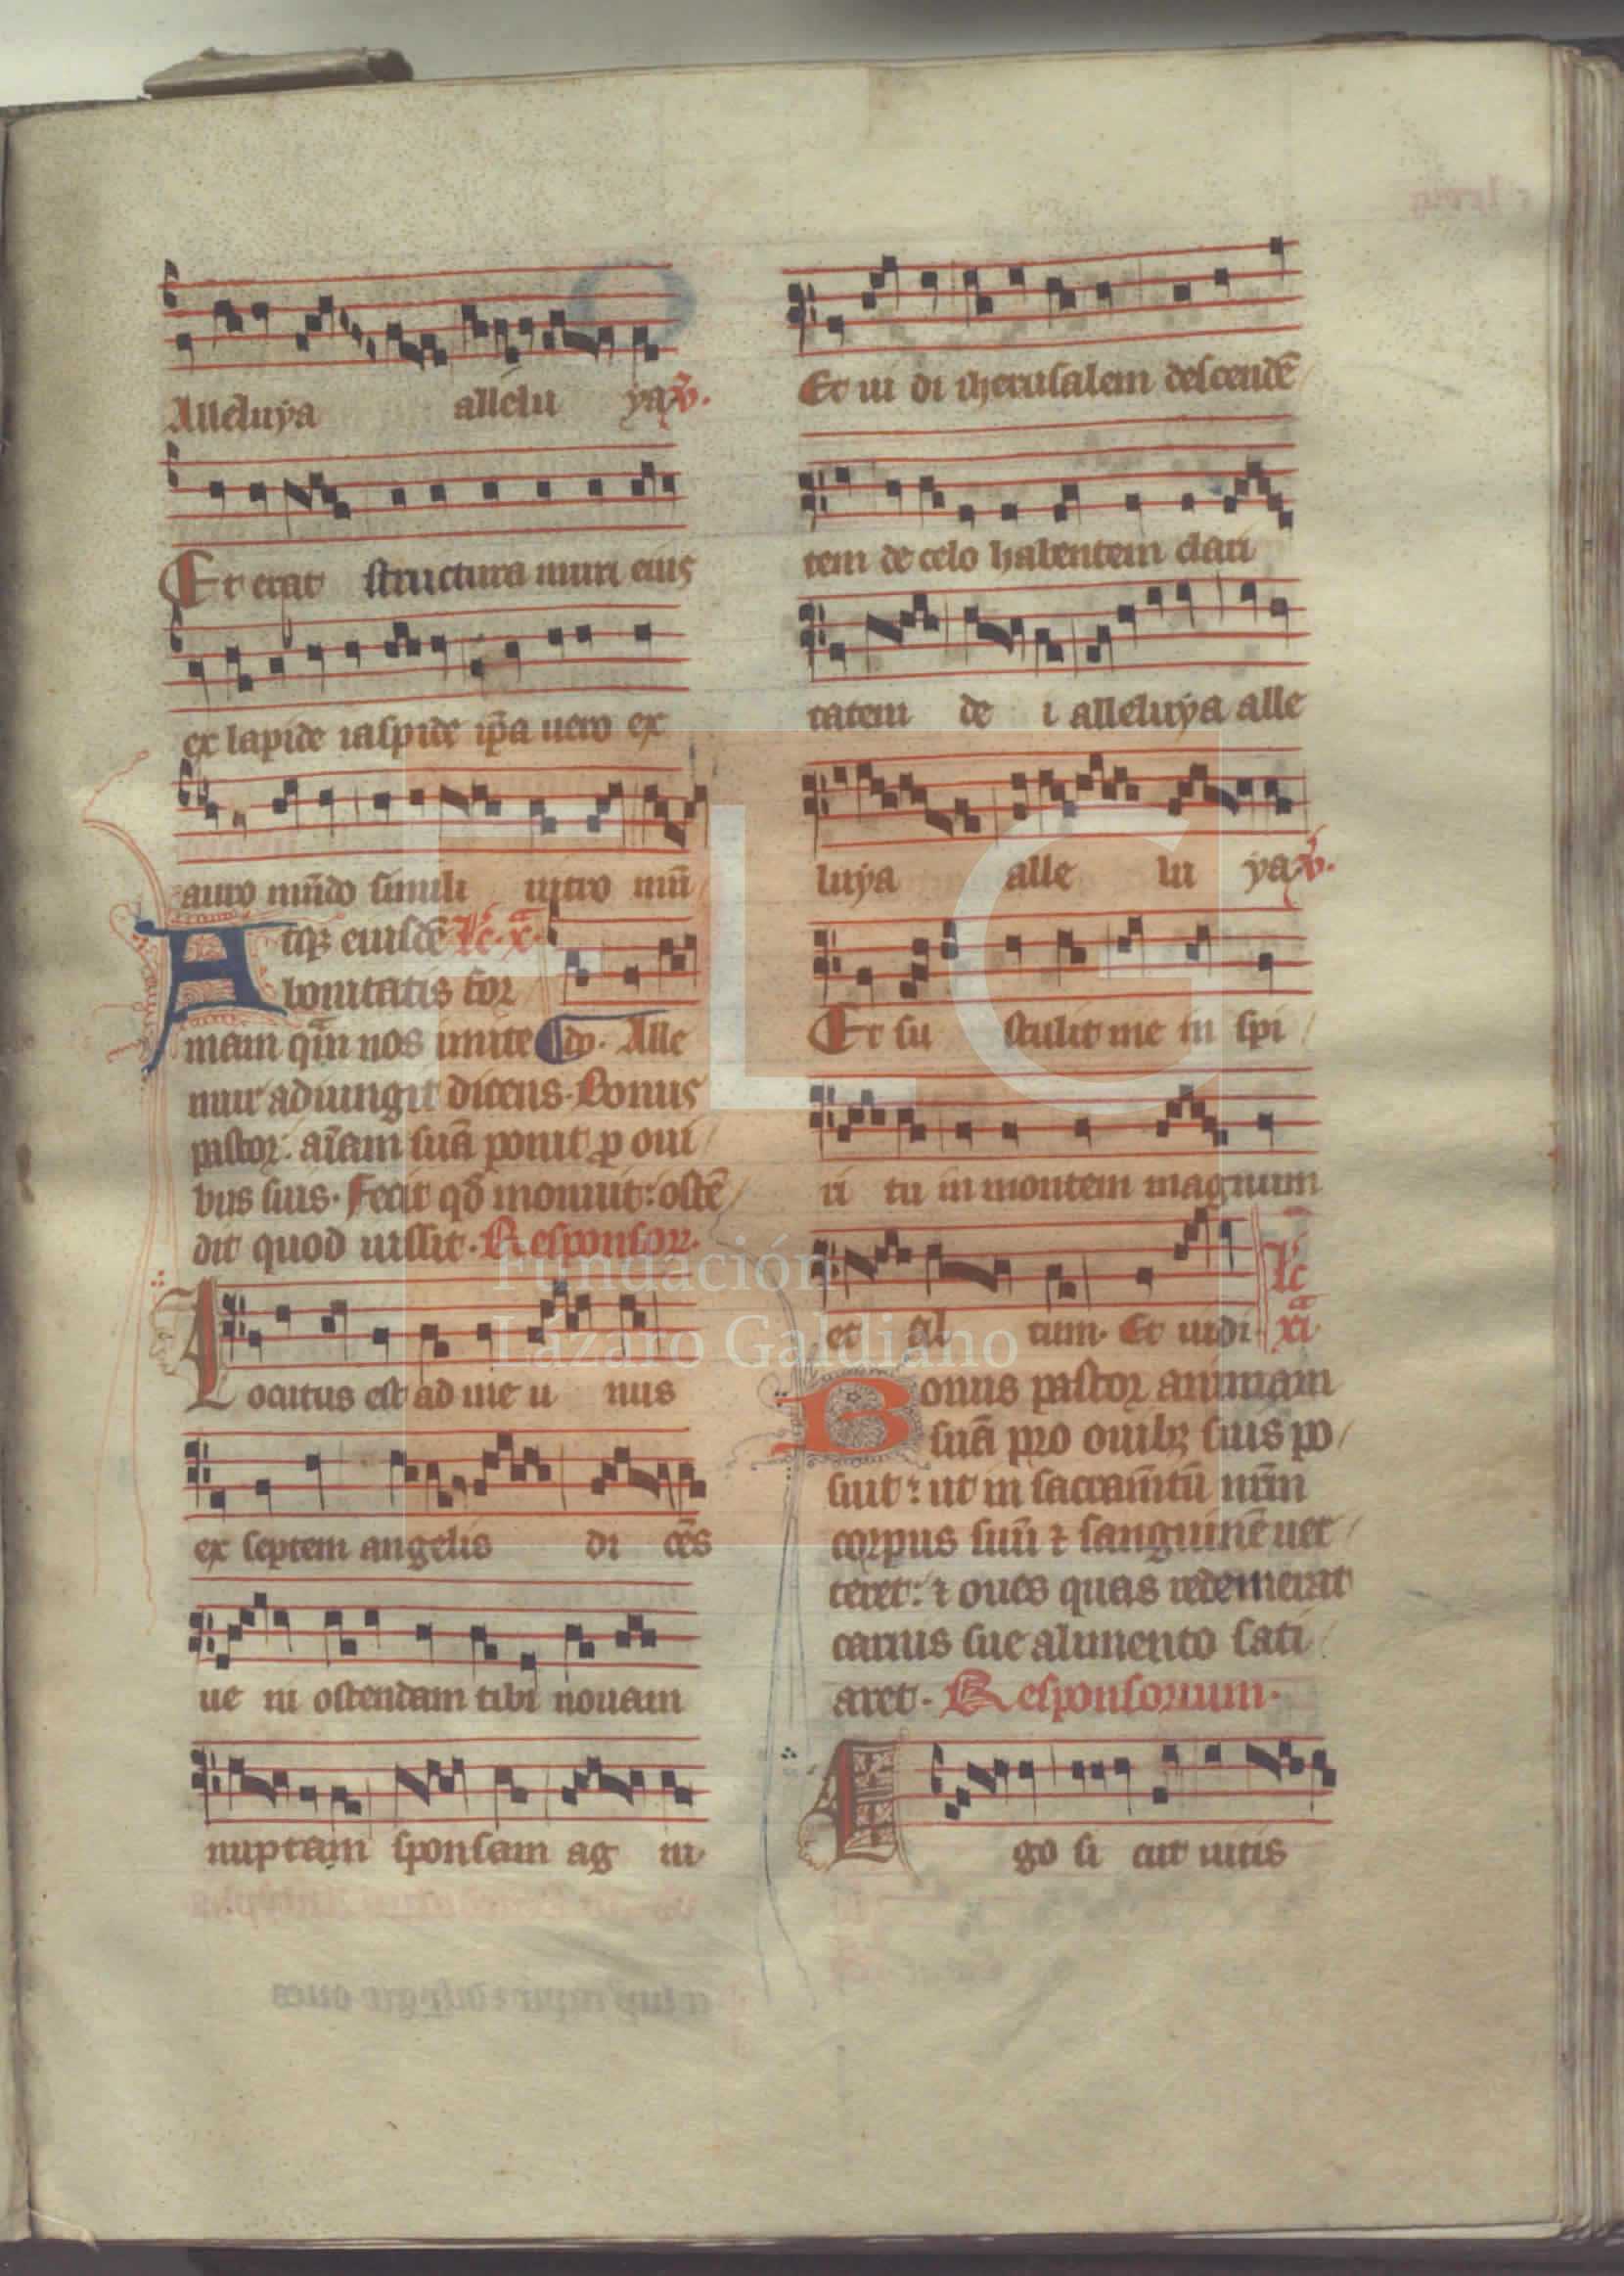 Alleluya allelu ya ℣.
Et erat structura muri eius
ex lapide iaspide ip̄a uero ex
auro mūdo simili uitro mū
Atqꝫ eiusdē lc̄. xᵃ.
bonitatis for
mam qm̄ nos imite do. Alle
mur adiungit dicens. Bonus
pastor: aīam suā ponit ꝓ oui
bus suis. Fecit qd̄ monuit: ostē
dit quod iussit. Responsor.
Locutus est ad me u nus
ex septem angelis di cēs
ue ni ostendam tibi nouam
nuptam sponsam ag ni
Et ui di iherusalem descendē
tem de celo habentem clari
tatem de i alleluya alle
luya alle lu ya ℣.
Et su stulit me in spi
ri tu in montem magnum
et al tum. Et uidi. lc̄ xiᵃ
Bonus pastor animam
suā pro ouibꝫ suis po
suit: ut in sacramtū nr̄m
corpus suū ⁊ sanguinē uer
teret: ⁊ oues quas redemerat
carnis sue alimento sati
aret. Responsorium.
Ego si cut uitis
FLG
Fundación
Lázaro Galdiano